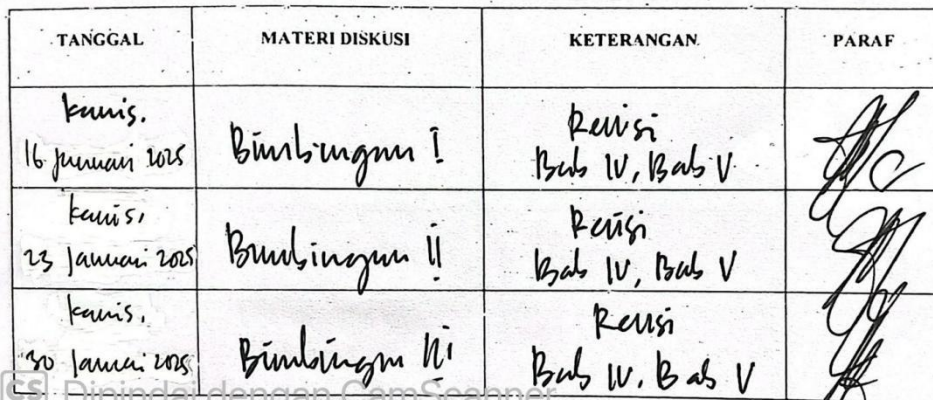 TANGGAL MATERI DISKUSI KETERANGAN PARAF
Kamis,
16 Januari 2025
Bimbingan I
Revisi
Bab IV, Bab V
Kamis,
23 Januari 2025
Bimbingan II
Revisi
Bab IV, Bab V
Kamis,
30 Januari 2025
Bimbingan III
Revisi
Bab IV, Bab V
CS Dipindai dengan CamScanner